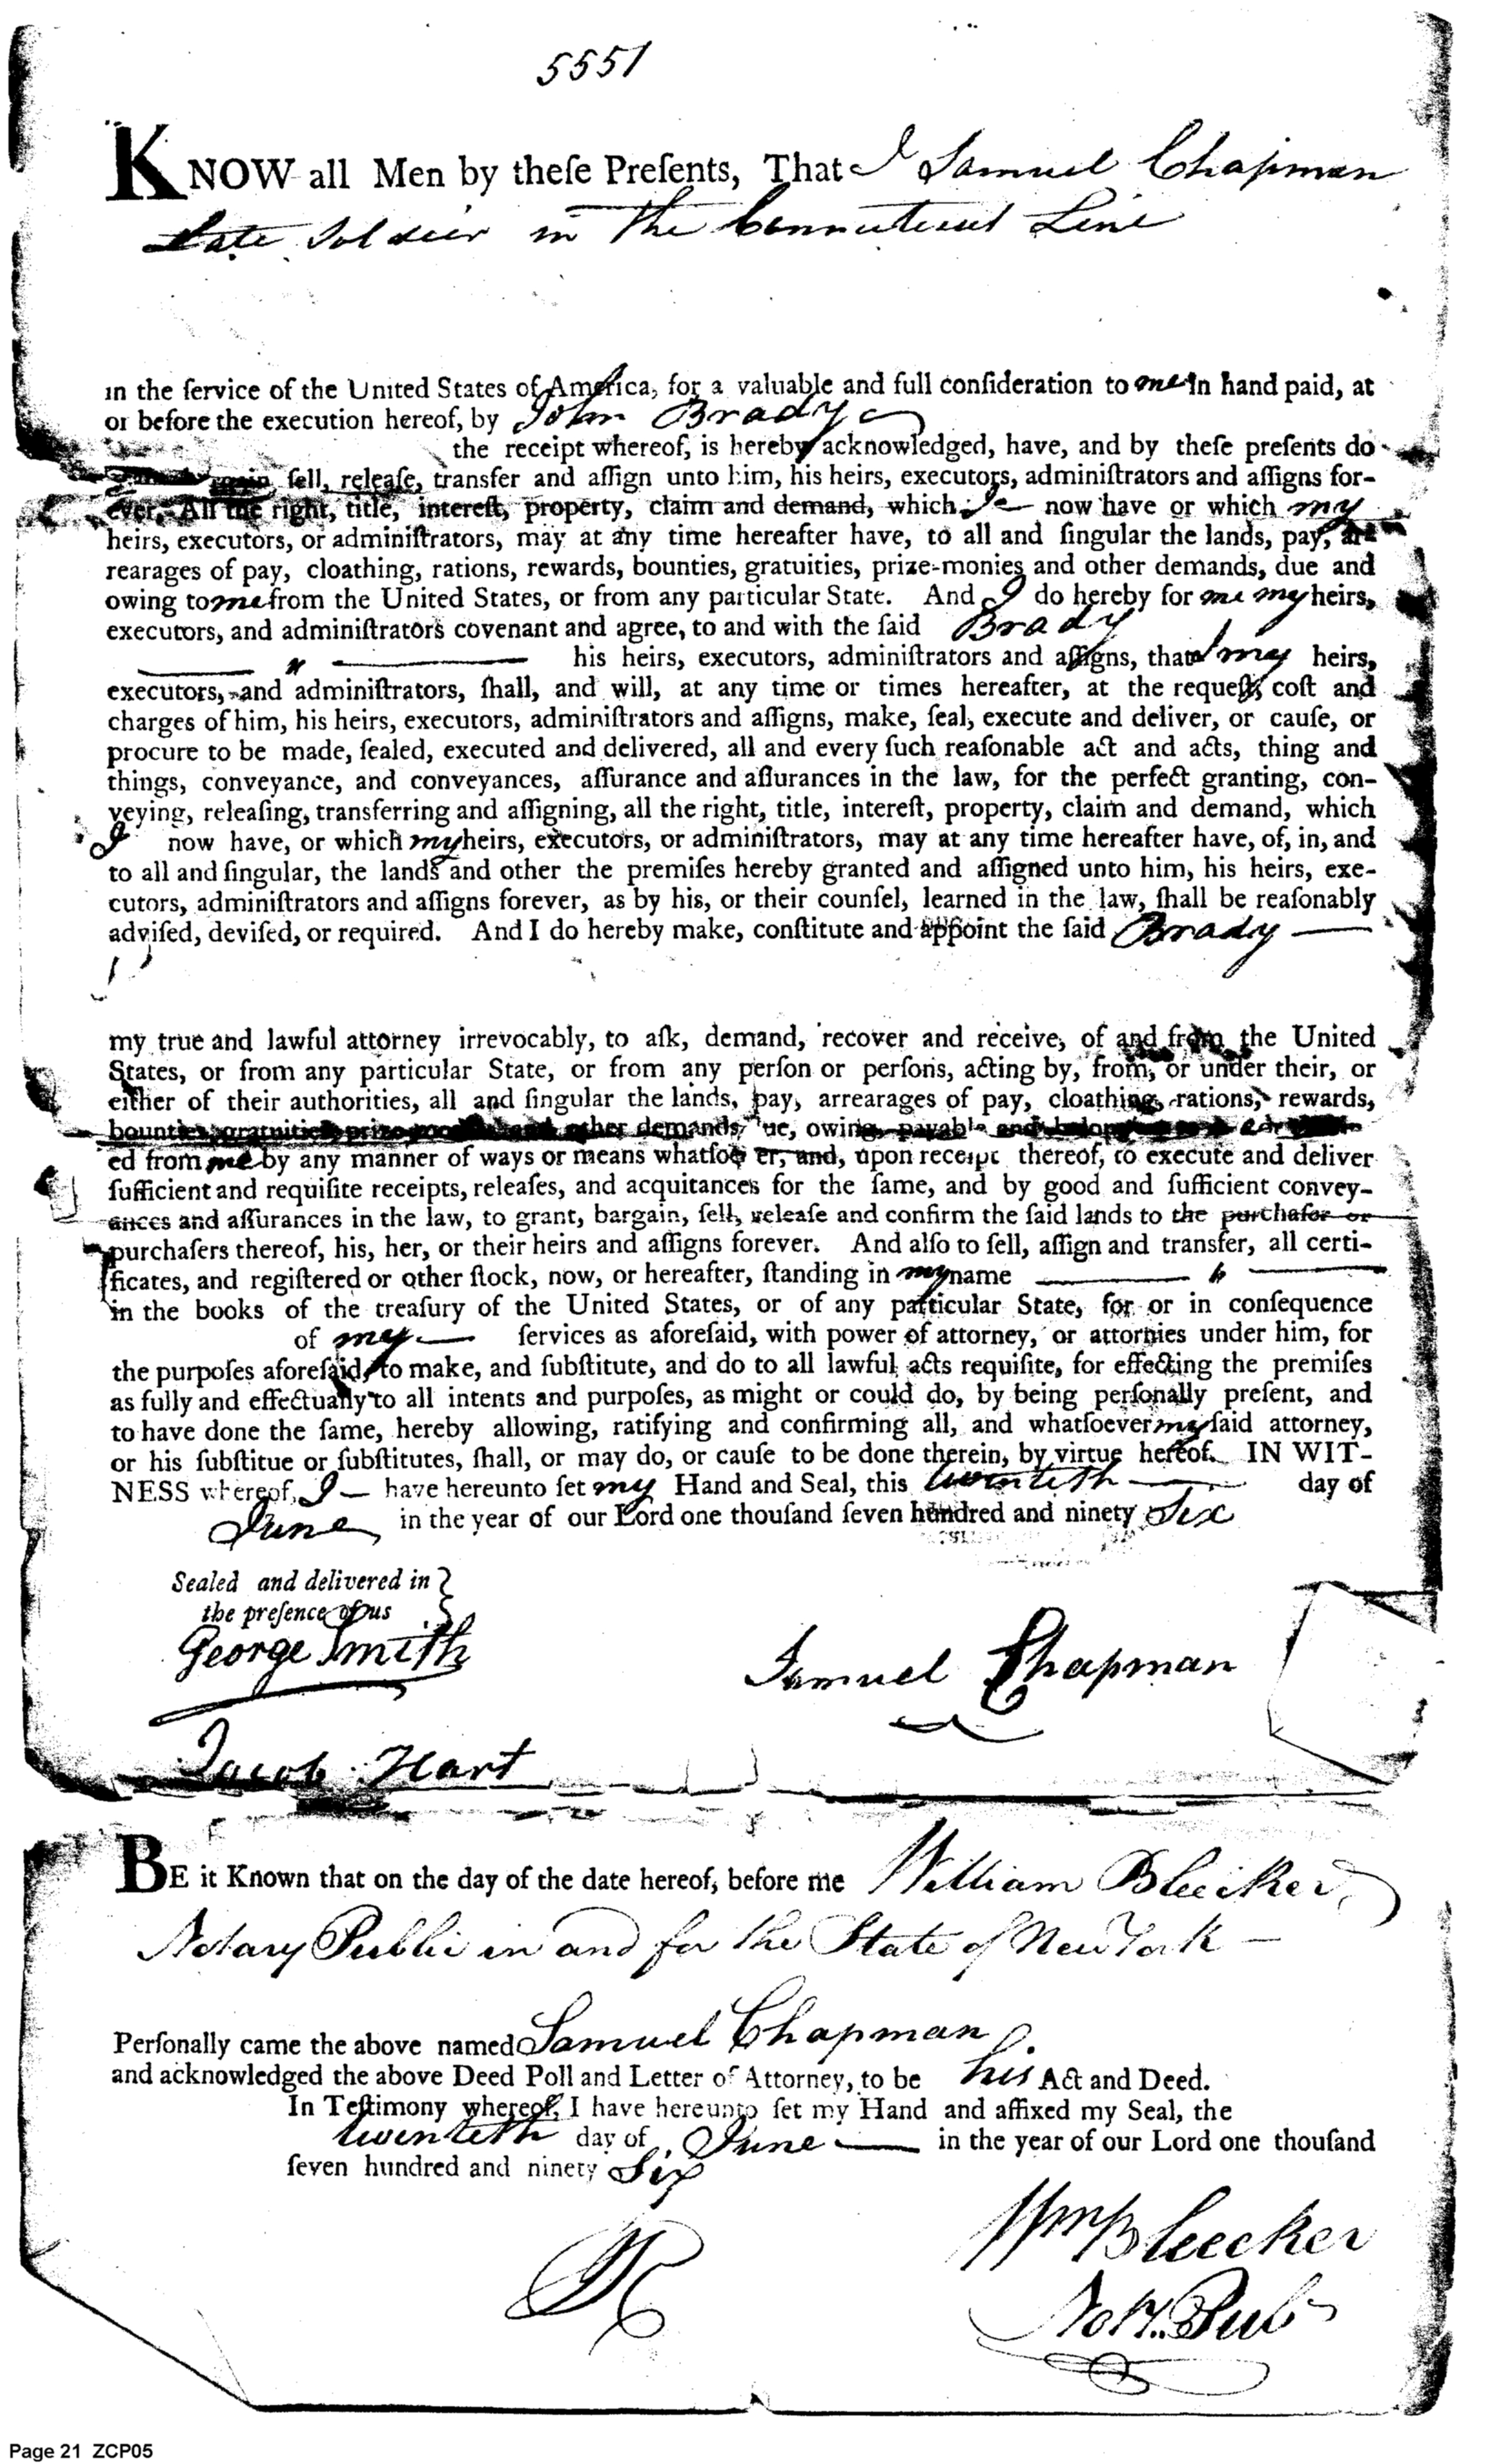 5551
KNOW all Men by theſe Preſents, That I Samuel Chapman
Late Soldier in the Connecticut Line
in the ſervice of the United States of America, for a valuable and full conſideration to me in hand paid, at
or before the execution hereof, by John Brady
the receipt whereof, is hereby acknowledged, have, and by theſe preſents do
ſell, releaſe, transfer and aſſign unto him, his heirs, executors, adminiſtrators and aſſigns for-
ever, All the right, title, intereſt, property, claim and demand, which I now have or which my
heirs, executors, or adminiſtrators, may at any time hereafter have, to all and ſingular the lands, pay, ar-
rearages of pay, cloathing, rations, rewards, bounties, gratuities, prize-monies and other demands, due and
owing to me from the United States, or from any particular State. And I do hereby for me my heirs,
executors, and adminiſtrators covenant and agree, to and with the ſaid Brady
his heirs, executors, adminiſtrators and aſſigns, that I my heirs,
executors, and adminiſtrators, ſhall, and will, at any time or times hereafter, at the requeſt, coſt and
charges of him, his heirs, executors, adminiſtrators and aſſigns, make, ſeal, execute and deliver, or cauſe, or
procure to be made, ſealed, executed and delivered, all and every ſuch reaſonable act and acts, thing and
things, conveyance, and conveyances, aſſurance and aſſurances in the law, for the perfect granting, con-
veying, releaſing, transferring and aſſigning, all the right, title, intereſt, property, claim and demand, which
I now have, or which my heirs, executors, or adminiſtrators, may at any time hereafter have, of, in, and
to all and ſingular, the lands and other the premiſes hereby granted and aſſigned unto him, his heirs, exe-
cutors, adminiſtrators and aſſigns forever, as by his, or their counſel, learned in the law, ſhall be reaſonably
adviſed, deviſed, or required. And I do hereby make, conſtitute and appoint the ſaid Brady
my true and lawful attorney irrevocably, to aſk, demand, recover and receive, of and from the United
States, or from any particular State, or from any perſon or perſons, acting by, from, or under their, or
either of their authorities, all and ſingular the lands, pay, arrearages of pay, cloathing, rations, rewards,
bounties, gratuities, other demands, owing, payable and
ed from me by any manner of ways or means whatſoever, and, upon receipt thereof, to execute and deliver
ſufficient and requiſite receipts, releaſes, and acquitances for the ſame, and by good and ſufficient convey-
ances and aſſurances in the law, to grant, bargain, ſell, releaſe and confirm the ſaid lands to the purchaſer or
purchaſers thereof, his, her, or their heirs and aſſigns forever. And alſo to ſell, aſſign and transfer, all certi-
ficates, and regiſtered or other ſtock, now, or hereafter, ſtanding in my name
in the books of the treaſury of the United States, or of any particular State, for or in conſequence
of my ſervices as aforeſaid, with power of attorney, or attornies under him, for
the purpoſes aforeſaid, to make, and ſubſtitute, and do to all lawful acts requiſite, for effecting the premiſes
as fully and effectually to all intents and purpoſes, as might or could do, by being perſonally preſent, and
to have done the ſame, hereby allowing, ratifying and confirming all, and whatſoever my ſaid attorney,
or his ſubſtitue or ſubſtitutes, ſhall, or may do, or cauſe to be done therein, by virtue hereof. IN WIT-
NESS whereof, I have hereunto ſet my Hand and Seal, this twentieth day of
June in the year of our Lord one thouſand ſeven hundred and ninety Six
Sealed and delivered in
the preſence of us
George Smith
Samuel Chapman
Jacob Hart
BE it Known that on the day of the date hereof, before me William Bleecker,
Notary Public in and for the State of New York
Perſonally came the above named Samuel Chapman
and acknowledged the above Deed Poll and Letter of Attorney, to be his Act and Deed.
In Teſtimony whereof, I have hereunto ſet my Hand and affixed my Seal, the
twentieth day of June in the year of our Lord one thouſand
ſeven hundred and ninety Six
Wm Bleecker
Noty. Pub
Page 21 ZCP05